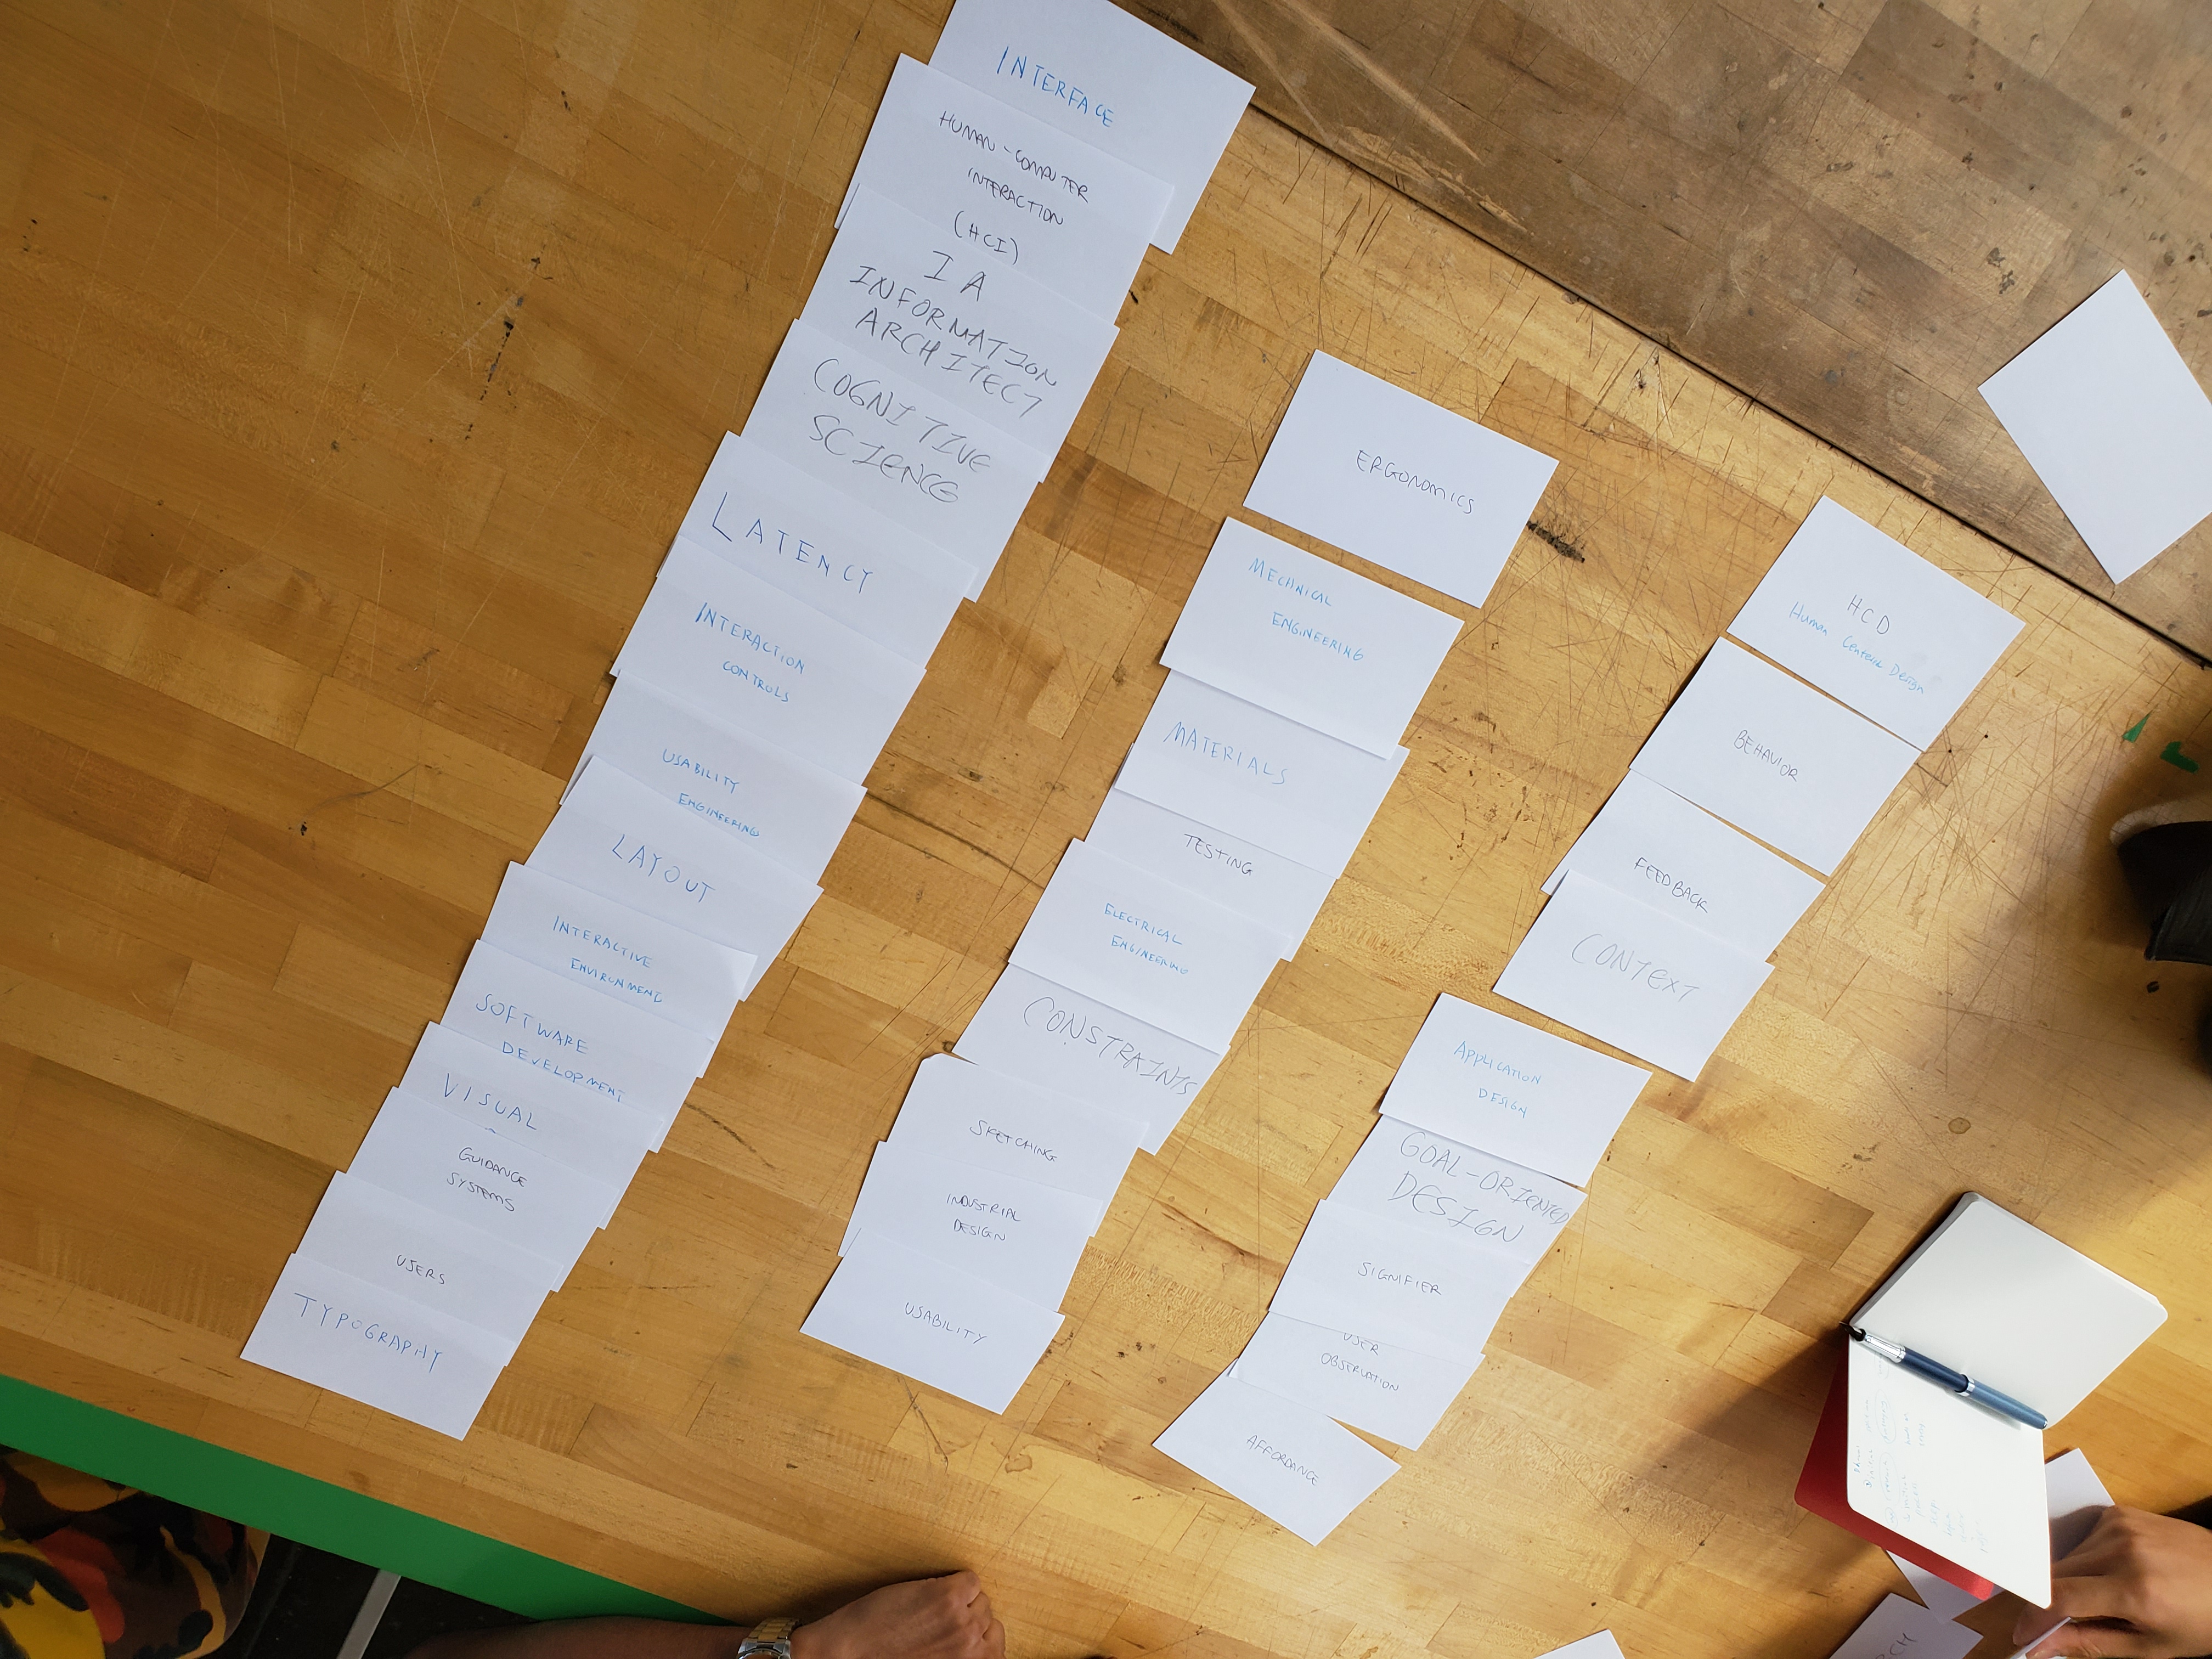 INTERFACE
HUMAN-COMPUTER
INTERACTION
(HCI)
IA
INFORMATION
ARCHITECT
COGNITIVE
SCIENCE
LATENCY
INTERACTION
CONTROLS
USABILITY
ENGINEERING
LAYOUT
INTERACTIVE
ENVIRONMENT
SOFTWARE
DEVELOPMENT
VISUAL
GUIDANCE
SYSTEMS
USERS
TYPOGRAPHY
ERGONOMICS
MECHNICAL
ENGINEERING
MATERIALS
TESTING
ELECTRICAL
ENGINEERING
CONSTRAINTS
SKETCHING
INDUSTRIAL
DESIGN
USABILITY
HCD
Human Centeric Design
BEHAVIOR
FEEDBACK
CONTEXT
APPLICATION
DESIGN
GOAL-ORIENTED
DESIGN
SIGNIFIER
USER
OBSERVATION
AFFORDANCE